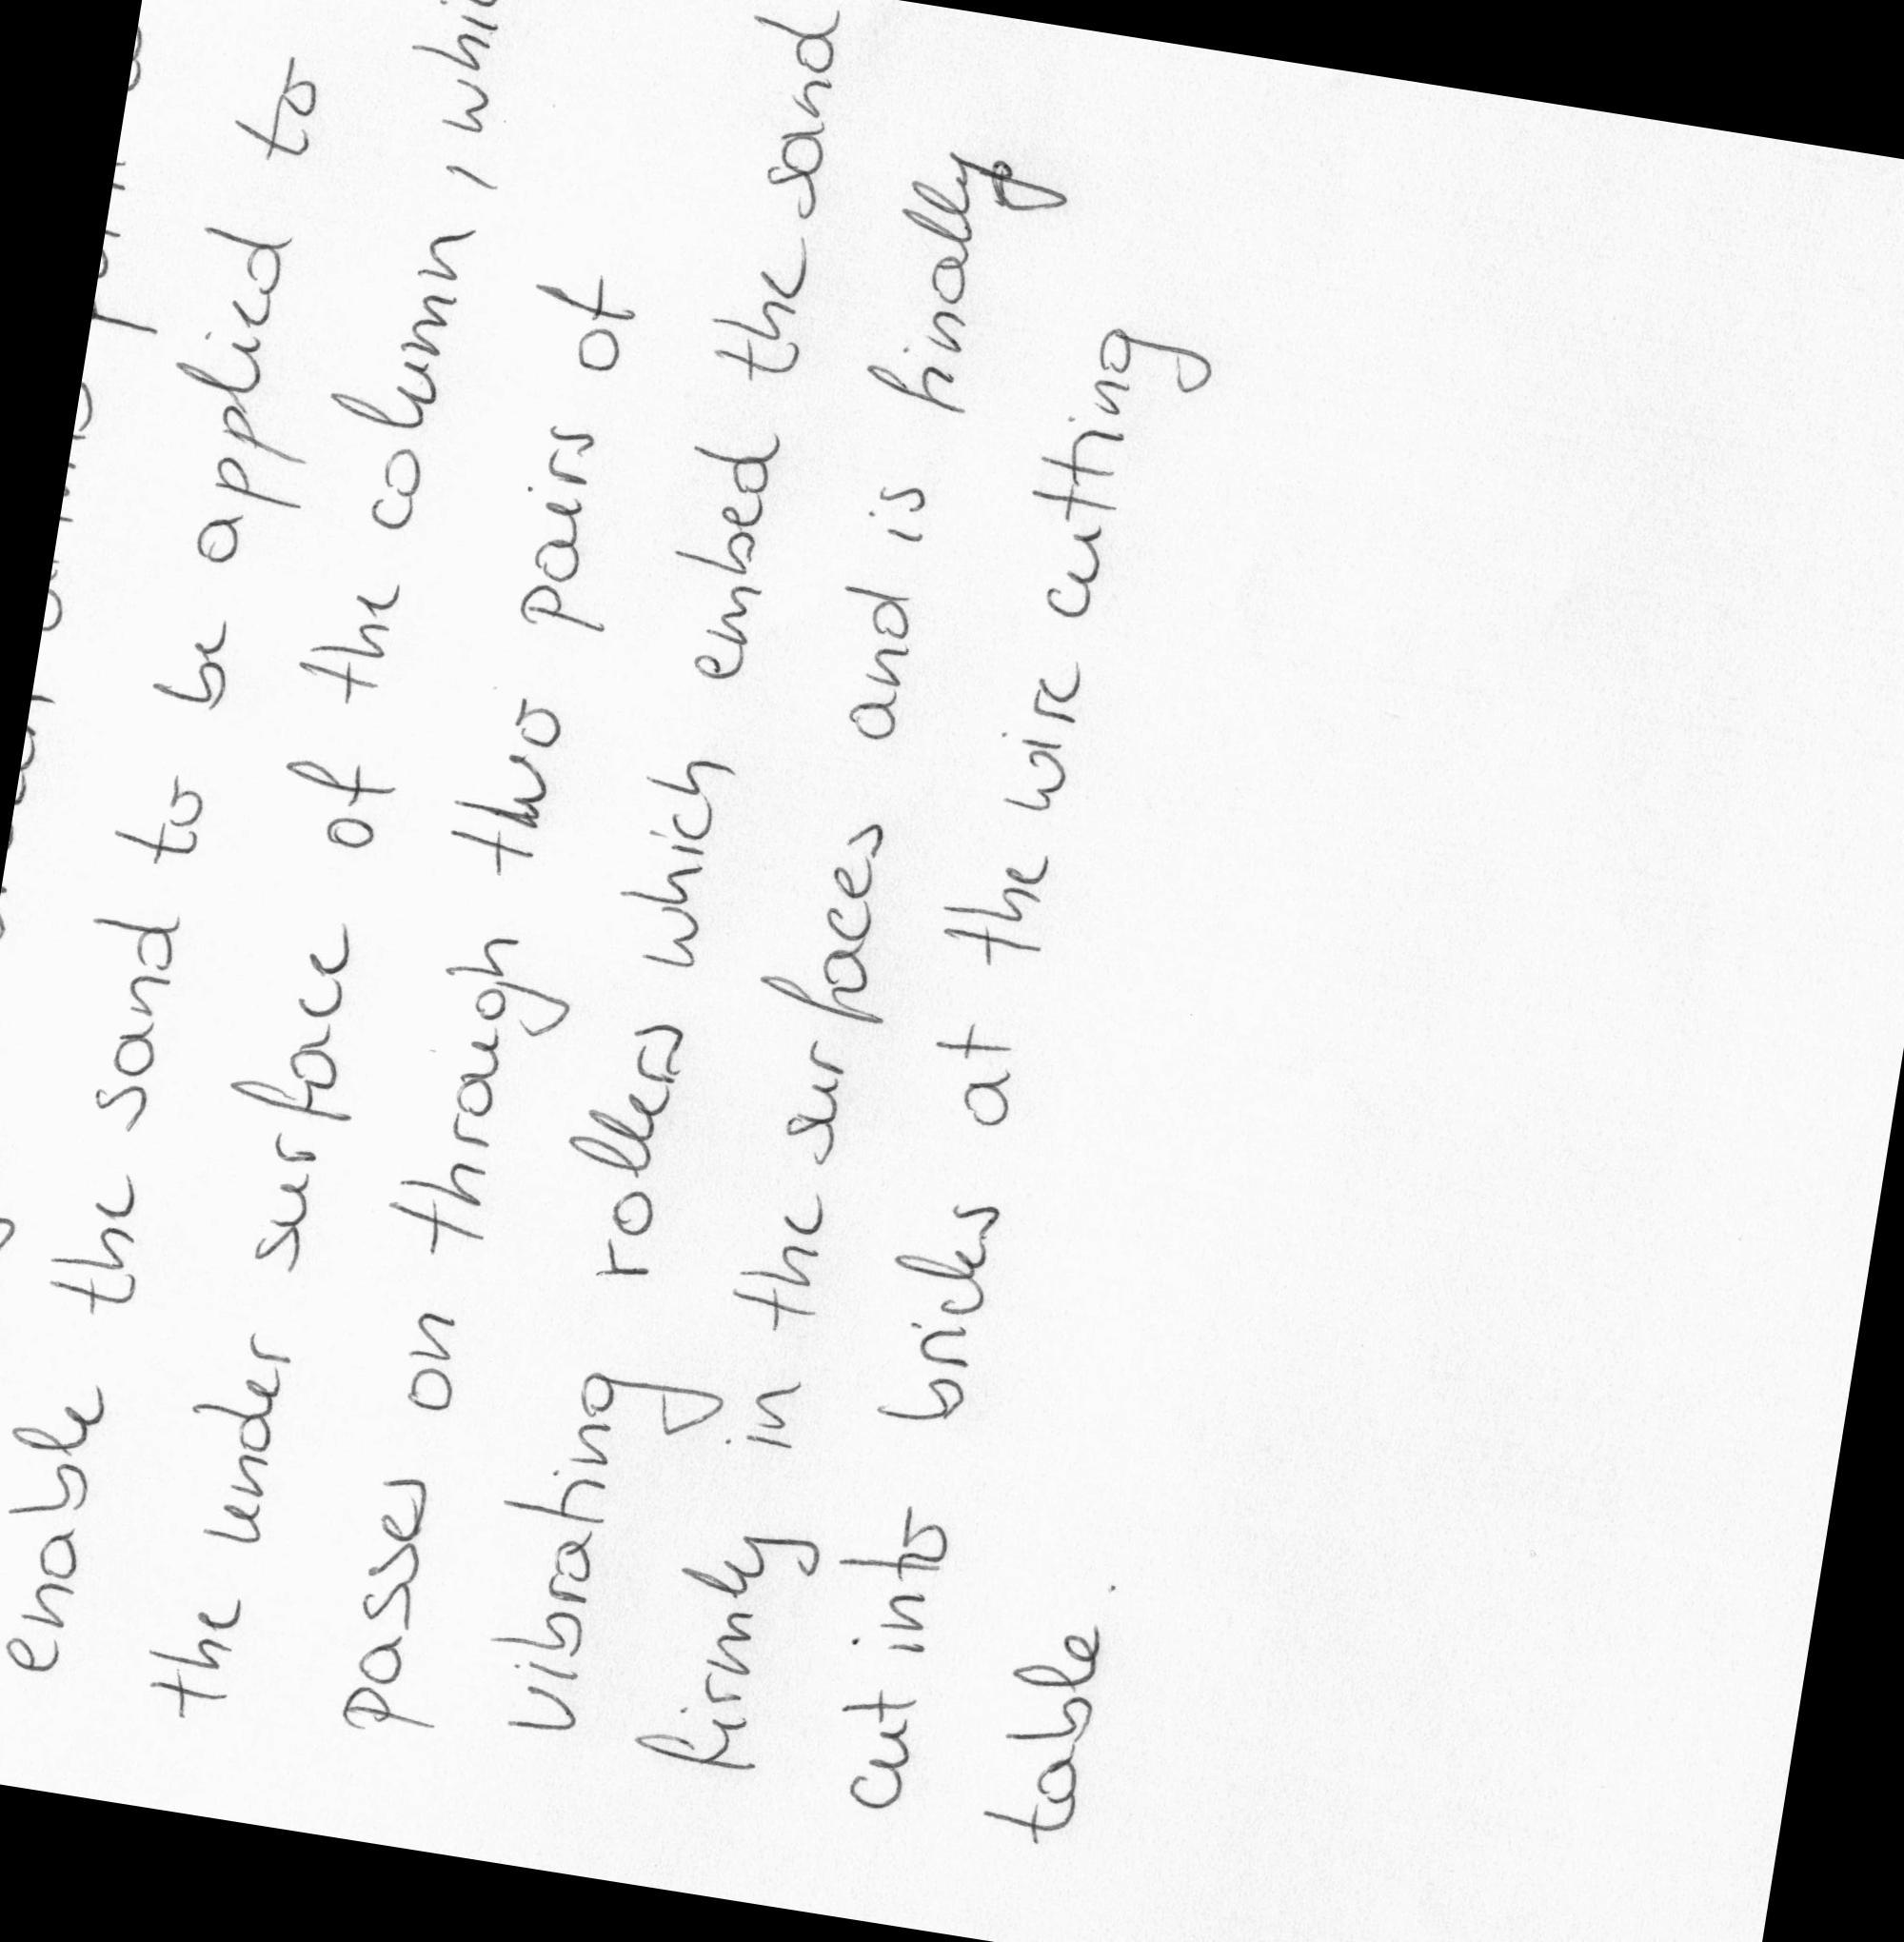 enable the sand to be applied to
the under surface of the column, which
passes on through two pairs of
vibrating rollers which embed the sand
firmly in the surfaces and is finally
cut into bricks at the wire cutting
table.